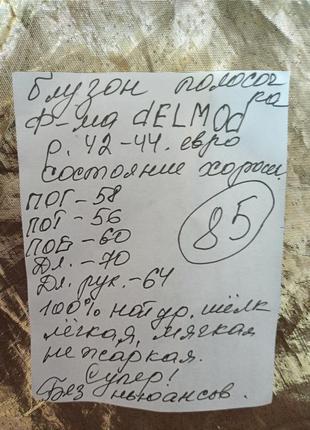 блузон полосоч
ка
ф-ма dELMOd
р. 42-44. евро
состояние хорош.
ПОГ-58
ПОТ-56
ПОБ-60
Дл.-70
Дл. рук.-64
85
100% натур. шёлк
лёгкая, мягкая
не жаркая.
Супер!
Без ньюансов.